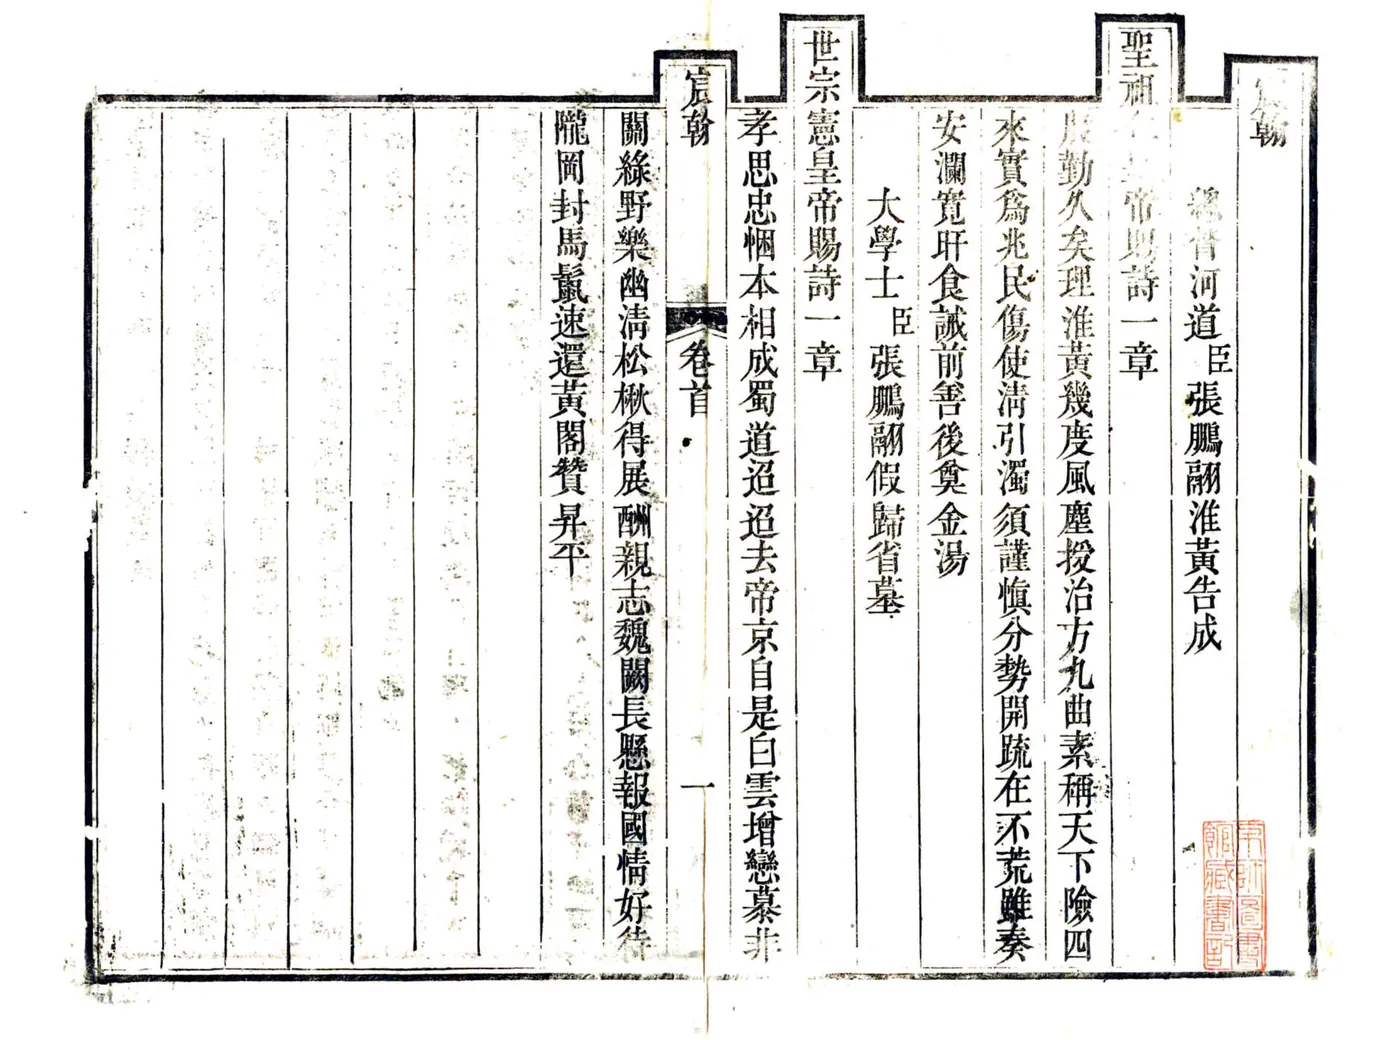 宸翰
總督河道臣張鵬翮淮黃告成
聖祖仁皇帝賜詩一章
殷勤久矣理淮黃幾度風塵授治方九曲素稱天下險四
來實爲兆民傷使淸引濁須謹愼分勢開疏在不荒雖奏
安瀾寛旰食誡前善後奠金湯
大學士臣張鵬翮假歸省墓
世宗憲皇帝賜詩一章
孝思忠悃本相成蜀道迢迢去帝京自是白雲增戀慕非
宸翰
卷首
一
關綠野樂幽淸松楸得展酬親志魏闕長懸報國情好待
隴岡封馬鬛速還黃閣贊昇平
京師圖書
館藏書記